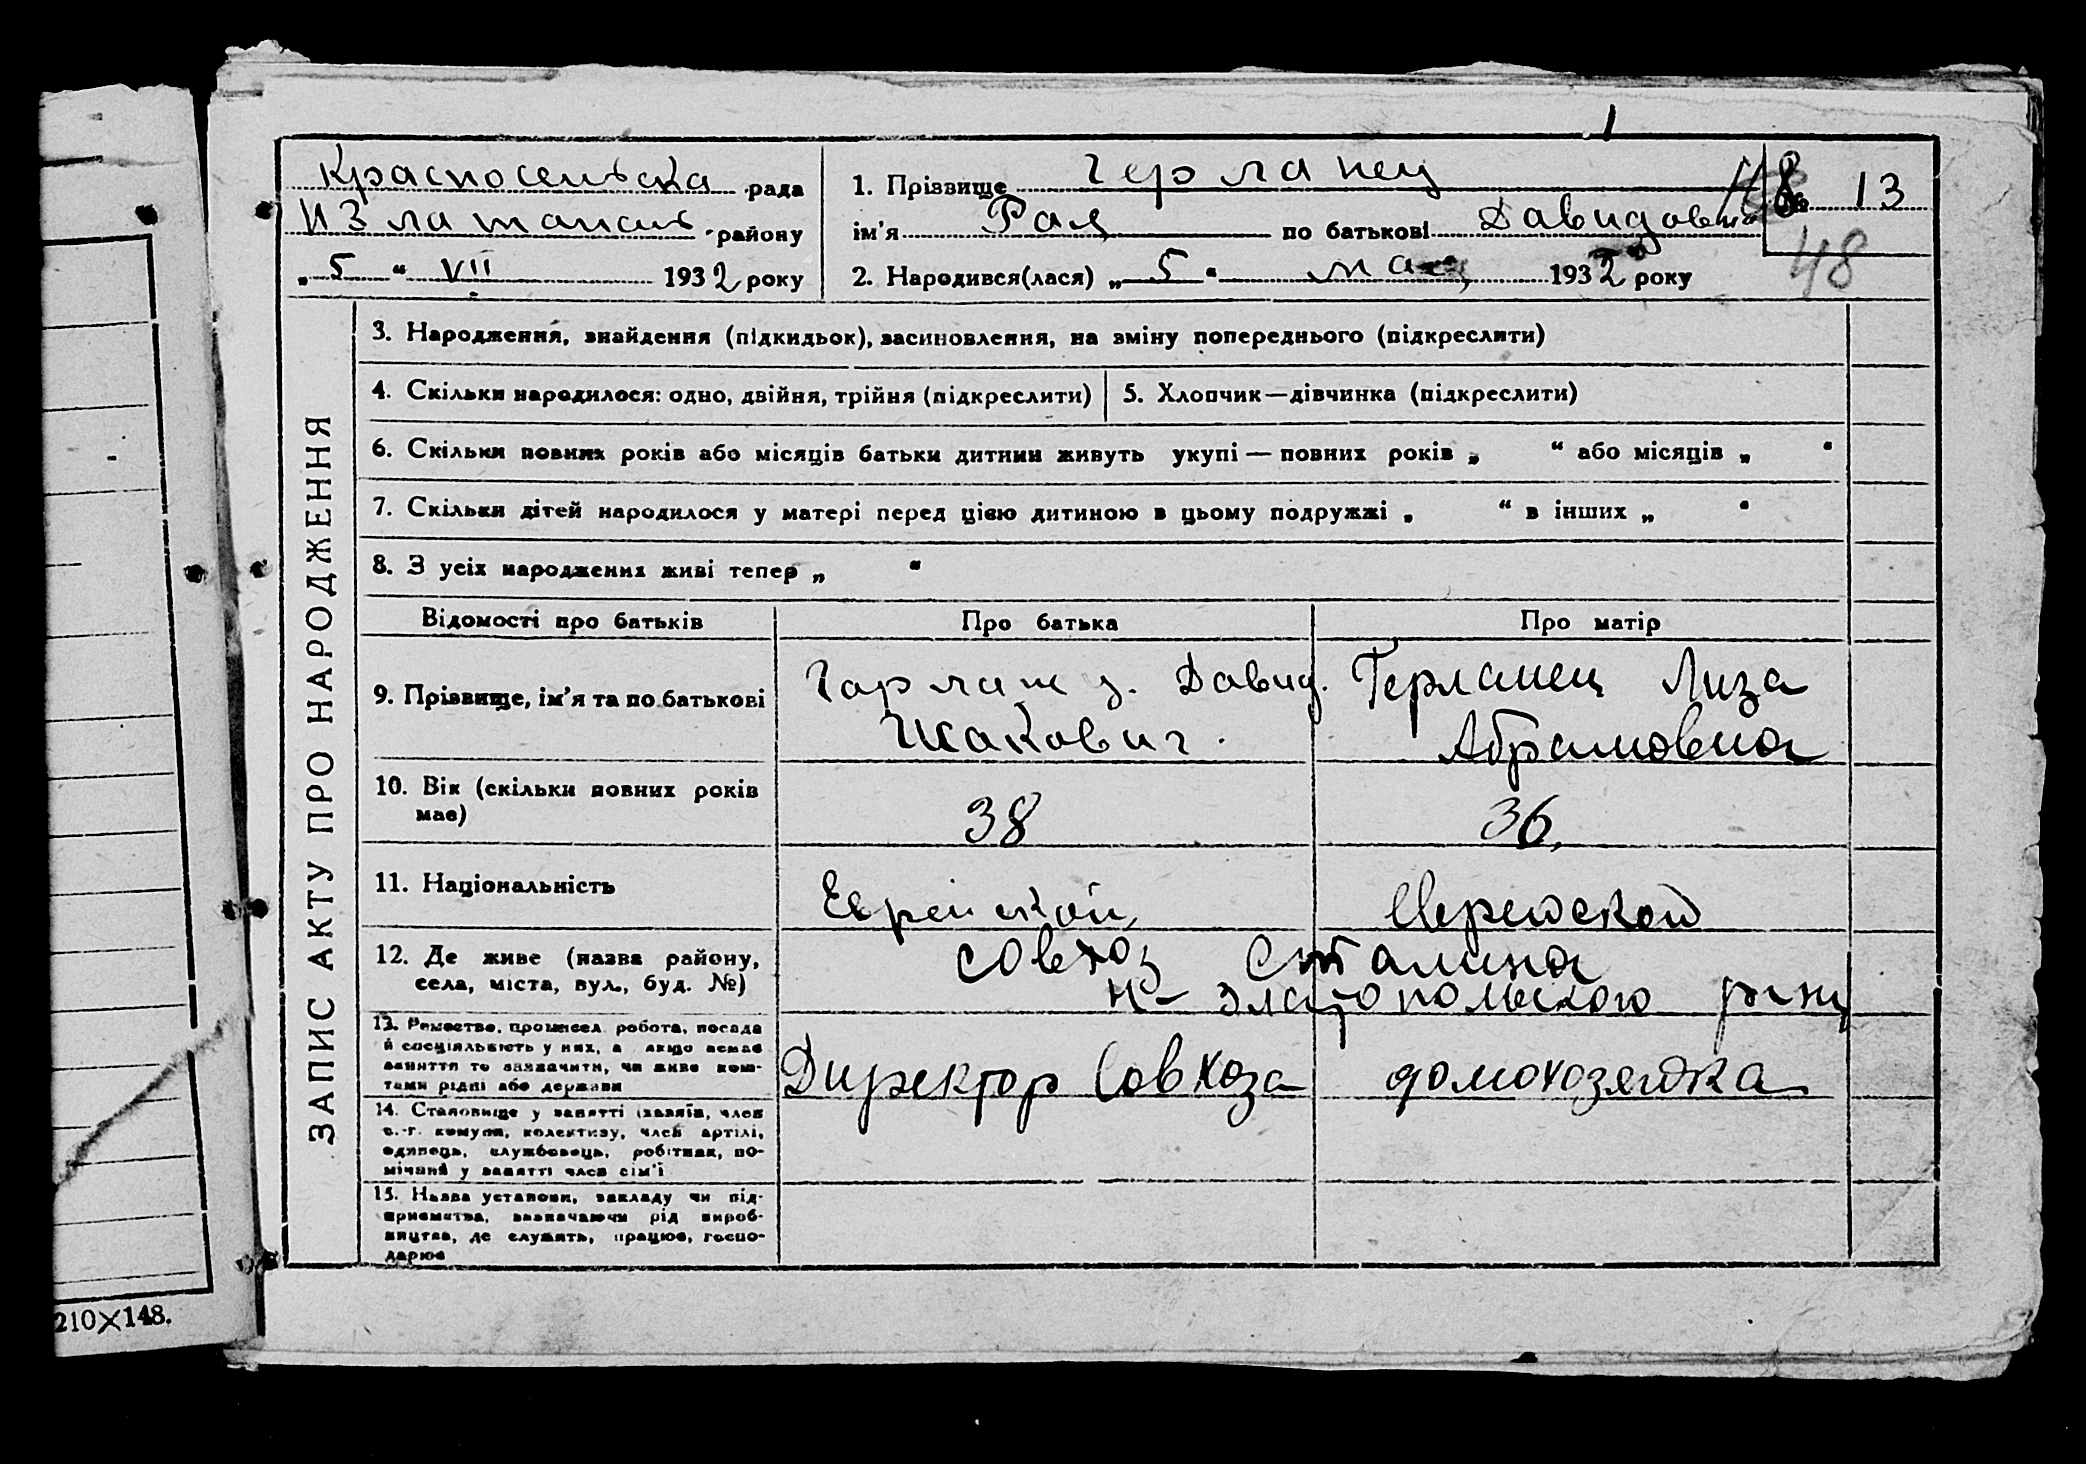 1
Красносельска рада
1. Прізвище Герланец
№ 13
району
ім'я Рая по батькові Давидовна
48
„ 5 “ VII 1932 року
2. Народився(лася) „ 5 “ мая 1932 року
ЗАПИС АКТУ ПРО НАРОДЖЕННЯ
3. Народження, знайдення (підкидьок), засиновлення, на зміну попереднього (підкреслити)
4. Скільки народилося: одно, двійня, трійня (підкреслити)
5. Хлопчик—дівчинка (підкреслити)
6. Скільки повних років або місяців батьки дитини живуть укупі — повних років „ “ або місяців „ “
7. Скільки дітей народилося у матері перед цією дитиною в цьому подружжі „ “ в інших „ “
8. З усіх народжених живі тепер „ “
Відомості про батьків
Про батька
Про матір
9. Прізвище, ім'я та по батькові
Давид.
Герланец Лиза
Абрамовна
10. Вік (скільки повних років
має)
38
36
11. Національність
Еврейской
Еврейской
12. Де живе (назва району,
села, міста, вул., буд. №)
совхоз Сталина
Н-Златопольского
13. Ремество, промисел, робота, посада
й спеціяльність у них, а якщо немає
заняття то зазначити, чи живе кош-
тами рідні або держави
Директор Совхоза
домохозяйка
14. Становище у занятті (хазяїн, член
с.-г. комуни, колективу, член артілі,
одинець, службовець, робітник, по-
мічний у занятті член сім'ї
15. Назва установи, закладу чи під-
приємства, визначаючи рід вироб-
ництва, де служить, працює, госпо-
дарює
210×148.